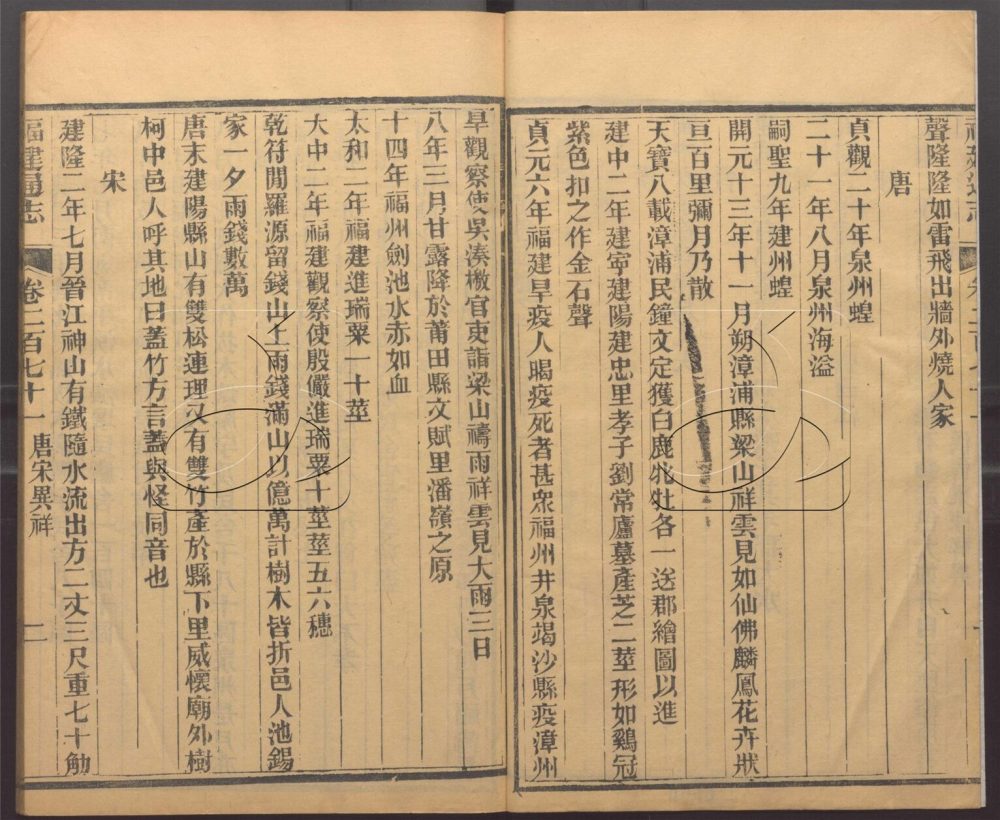 聲隆隆如雷飛出牆外燒人家
唐
貞觀二十年泉州蝗
二十一年八月泉州海溢
嗣聖九年建州蝗
開元十三年十一月朔漳浦縣梁山祥雲見如仙佛麟鳳花卉狀
亘百里彌月乃散
天寶八載漳浦民鐘文定獲白鹿牝牡各一送郡繪圖以進
建中二年建寧建陽建忠里孝子劉常廬墓產芝二莖形如鷄冠
紫色扣之作金石聲
貞元六年福建旱疫人暍疫死者甚衆福州井泉竭沙縣疫漳州
旱觀察使吳湊檄官吏詣梁山禱雨祥雲見大雨三日
八年三月甘露降於莆田縣文賦里潘嶺之原
十四年福州劍池水赤如血
太和二年福建進瑞粟一十莖
大中二年福建觀察使殷儼進瑞粟十莖莖五六穗
乾符閒羅源留錢山上雨錢滿山以億萬計樹木皆折邑人池錫
家一夕雨錢數萬
唐末建陽縣山有雙松連理又有雙竹產於縣下里威懷廟外樹
柯中邑人呼其地曰蓋竹方言蓋與怪同音也
宋
建隆二年七月晉江神山有鐵隨水流出方二丈三尺重七十觔
福建通志
卷二百七十一
唐宋異祥
二